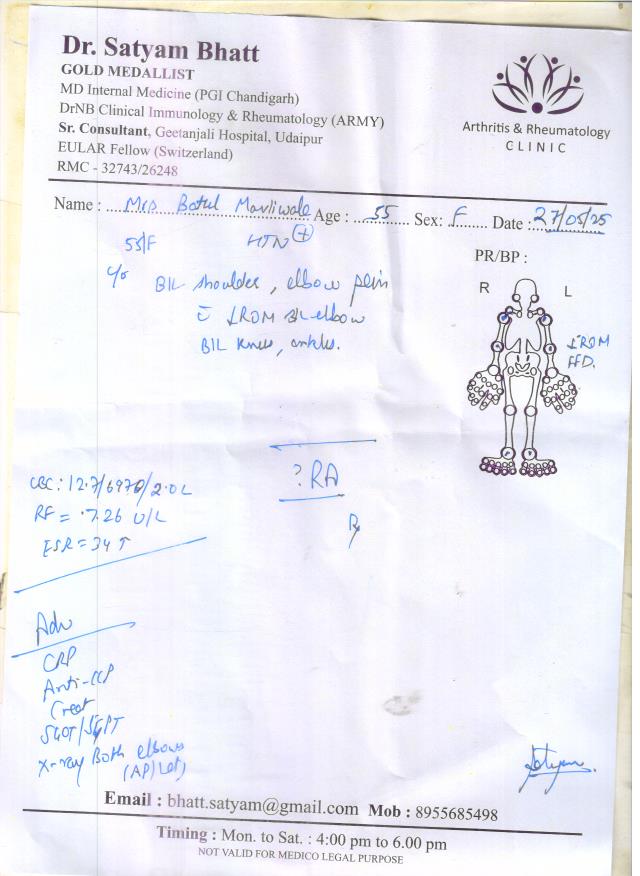 Dr. Satyam Bhatt
GOLD MEDALLIST
MD Internal Medicine (PGI Chandigarh)
DrNB Clinical Immunology & Rheumatology (ARMY)
Sr. Consultant, Geetanjali Hospital, Udaipur
EULAR Fellow (Switzerland)
RMC - 32743/26248
Arthritis & Rheumatology
CLINIC
Name : Mrs Batul Age : 55 Sex: F Date : 27/05/25
55/F HTN +
PR/BP :
c/o B/L shoulder, elbow pain
c̄ ↓ROM B/L elbow
B/L knees, ankles.
R L
↓ROM
FFD.
? RA
Rx
CBC: 12.7/6970/2.0L
RF = 7.26 U/L
ESR = 34 ↑
Adv
CRP
Anti-CCP
Creat
SGOT/SGPT
X-ray Both elbows
(AP/Lat)
Satyam
Email : bhatt.satyam@gmail.com Mob : 8955685498
Timing : Mon. to Sat. : 4:00 pm to 6.00 pm
NOT VALID FOR MEDICO LEGAL PURPOSE